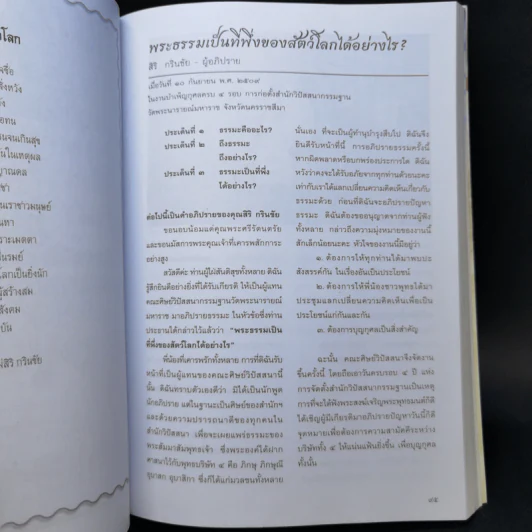 โลก
พระธรรมเป็นที่พึ่งของสัตว์โลกได้อย่างไร?
สิริ กรินชัย - ผู้อภิปราย
เมื่อวันที่ ๑๐ กันยายน พ.ศ. ๒๕๐๙
ในงานบำเพ็ญกุศลครบ ๔ รอบ การก่อตั้งสำนักวิปัสสนากรรมฐาน
วัดพระนารายณ์มหาราช จังหวัดนครราชสีมา
ประเด็นที่ ๑ ธรรมะคืออะไร?
ประเด็นที่ ๒ ถึงธรรมะ
ถึงอย่างไร?
ประเด็นที่ ๓ ธรรมะเป็นที่พึ่ง
ได้อย่างไร?
ต่อไปนี้เป็นคำอภิปรายของคุณสิริ กรินชัย
ขอนอบน้อมแด่คุณพระศรีรัตนตรัย
และขอนมัสการพระคุณเจ้าที่เคารพสักการะ
อย่างสูง
สวัสดีค่ะ ท่านผู้ใฝ่สันติสุขทั้งหลาย ดิฉัน
รู้สึกยินดีอย่างยิ่งที่ได้รับเกียรติ ให้เป็นผู้แทน
คณะศิษย์วิปัสสนากรรมฐานวัดพระนารายณ์
มหาราช มาอภิปรายธรรมะ ในหัวข้อซึ่งท่าน
ประธานได้กล่าวไว้แล้วว่า "พระธรรมเป็น
ที่พึ่งของสัตว์โลกได้อย่างไร"
พี่น้องที่เคารพรักทั้งหลาย การที่ดิฉันรับ
หน้าที่เป็นผู้แทนของคณะศิษย์วิปัสสนานี้
นั้น ดิฉันทราบตัวเองดีว่า มิได้เป็นนักพูด
นักอภิปราย แต่ในฐานะเป็นศิษย์ของสำนักฯ
และด้วยความปรารถนาดีของทุกคนใน
สำนักวิปัสสนา เพื่อจะเผยแพร่ธรรมะของ
พระสัมมาสัมพุทธเจ้า ซึ่งพระองค์ได้ฝาก
ศาสนาไว้กับพุทธบริษัท ๔ คือ ภิกษุ ภิกษุณี
อุบาสก อุบาสิกา ซึ่งก็ได้แก่มวลชนทั้งหลาย
นั่นเอง ที่จะเป็นผู้ทำนุบำรุงสืบไป ดิฉันจึง
ยินดีรับหน้าที่นี้ การอภิปรายธรรมครั้งนี้
หากผิดพลาดหรือบกพร่องประการใด ดิฉัน
หวังว่าคงจะได้รับอภัยจากทุกท่านด้วยนะคะ
เท่ากับเราได้แลกเปลี่ยนความคิดเห็นเกี่ยวกับ
ธรรมะด้วย ก่อนที่ดิฉันจะอภิปรายปัญหา
ธรรมะ ดิฉันต้องขออนุญาตจากท่านผู้ฟัง
ทั้งหลาย กล่าวถึงความมุ่งหมายของงานนี้
สักเล็กน้อยนะคะ หัวใจของงานนี้มีอยู่ว่า
๑. ต้องการให้ทุกท่านได้มาพบปะ
สังสรรค์กัน ในเรื่องอันเป็นประโยชน์
๒. ต้องการให้พี่น้องชาวพุทธได้มา
ประชุมแลกเปลี่ยนความคิดเห็นเพื่อเป็น
ประโยชน์แก่กันและกัน
๓. ต้องการบุญกุศลเป็นสิ่งสำคัญ
ฉะนั้น คณะศิษย์วิปัสสนาจึงจัดงาน
ขึ้นครั้งนี้ โดยถือเอาวันครบรอบ ๔ ปี แห่ง
การจัดตั้งสำนักวิปัสสนากรรมฐานเป็นเหตุ
การที่จะได้ฟังพระสงฆ์เจริญพระพุทธมนต์ก็ดี
ได้เชิญผู้มีเกียรติมาอภิปรายปัญหาวันนี้ก็ดี
จุดหมายเพื่อต้องการความสามัคคีระหว่าง
บริษัททั้ง ๔ ให้แน่นแฟ้นยิ่งขึ้น เพื่อบุญกุศล
ทั้งนั้น